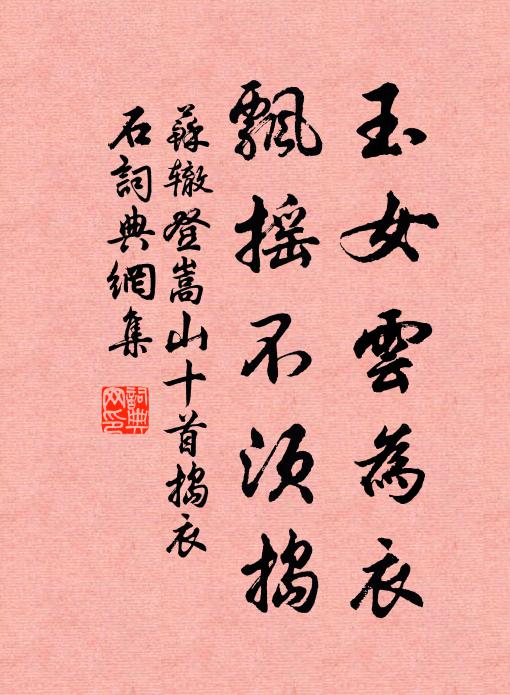 玉女雲為衣
飄摇不須搗
蘇辙登嵩山十首搗衣
石詞典網集
詞典
网印